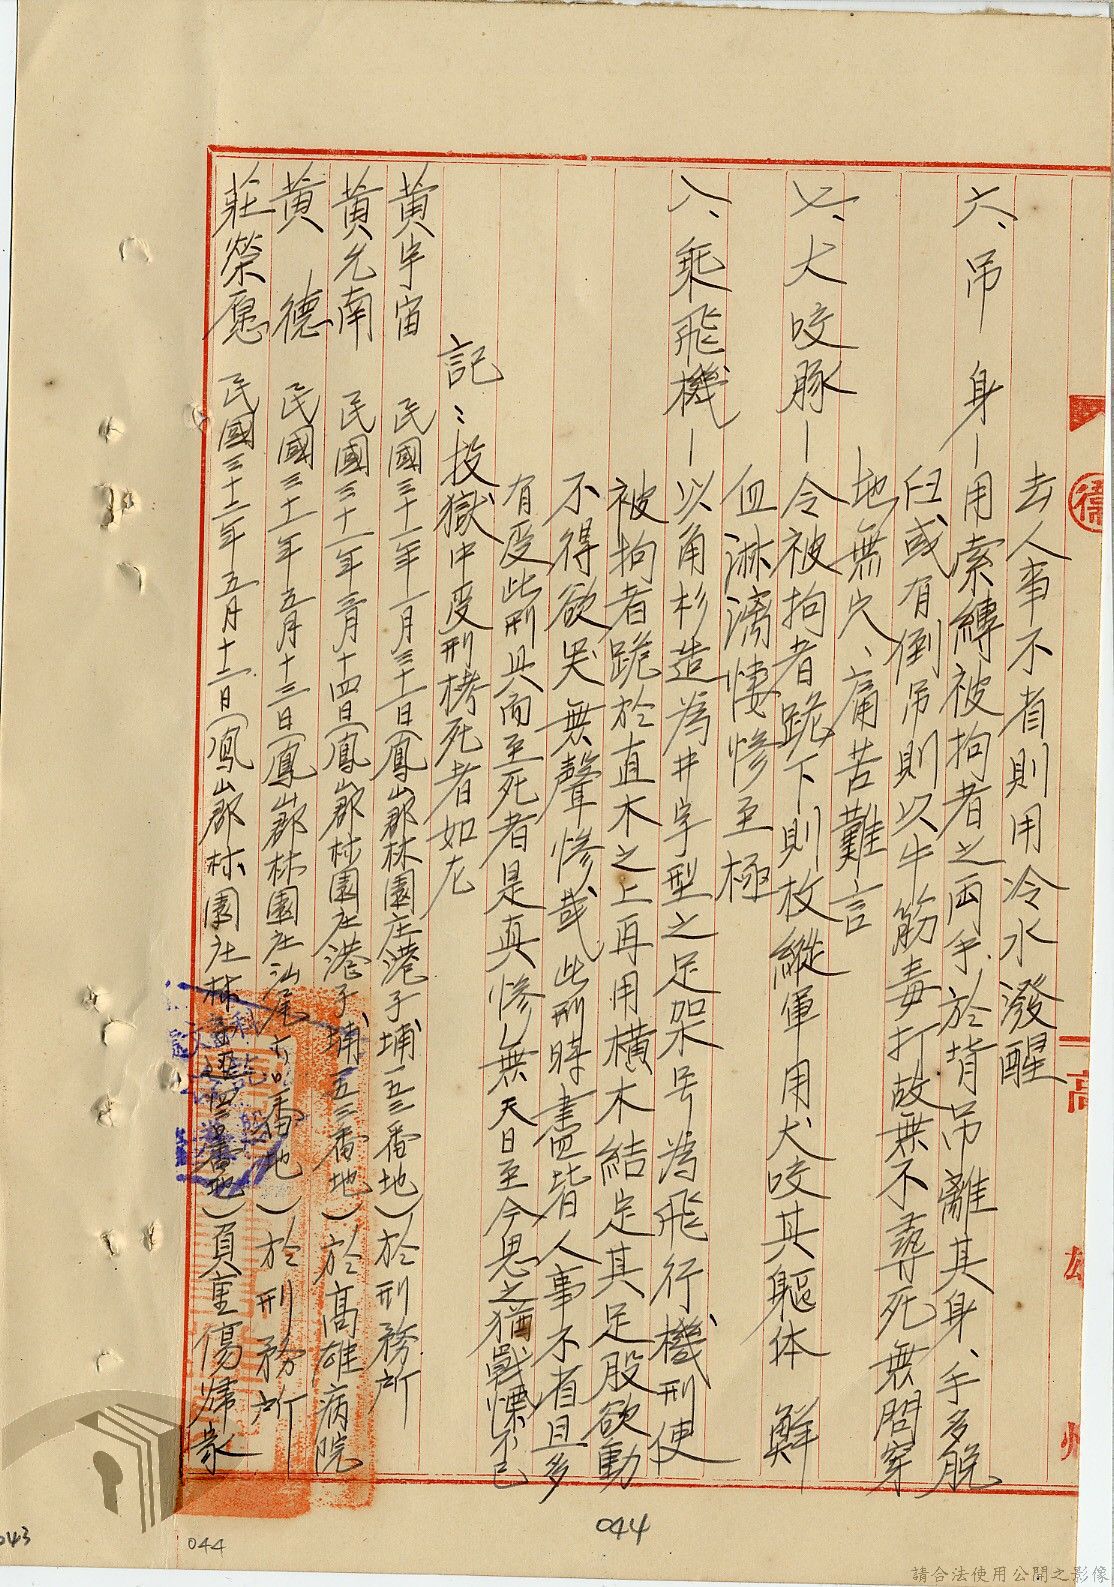 去人事不省則用冷水潑醒
六、吊　身－用索縛被拘者之両手、於背吊離其身、手多脫
臼或有倒吊則以牛筋毒打故無不尋死無問穿
地無穴、痛苦難言
七、犬咬豚－令被拘者跪下則放縱軍用犬咬其軀体　鮮
血淋漓悽慘至極
八、乘飛機－以角杉造為井字型之足架号為飛行機刑使
被拘者跪於直木之上再用橫木結定其足股欲動
不得欲哭無聲慘哉此刑時盡皆人事不省且多
有受此刑具而至死者是真慘無天日至今思之猶戰慄不已
記：投獄中受刑栲死者如左
黃宇宙　民國三十一年一月三十一日（鳳山郡林園庄港子埔一五三番地）於刑務所
黃允南　民國三十一年三月十四日（鳳山郡林園庄港子埔一五三番地）於高雄病院
黃　德　民國三十一年五月十三日（鳳山郡林園庄汕尾番地）於刑務所
莊榮愿　民國三十二年五月十二日（鳳山郡林園庄林番地）負重傷歸家
高
雄
州
044
044
043
請合法使用公開之影像